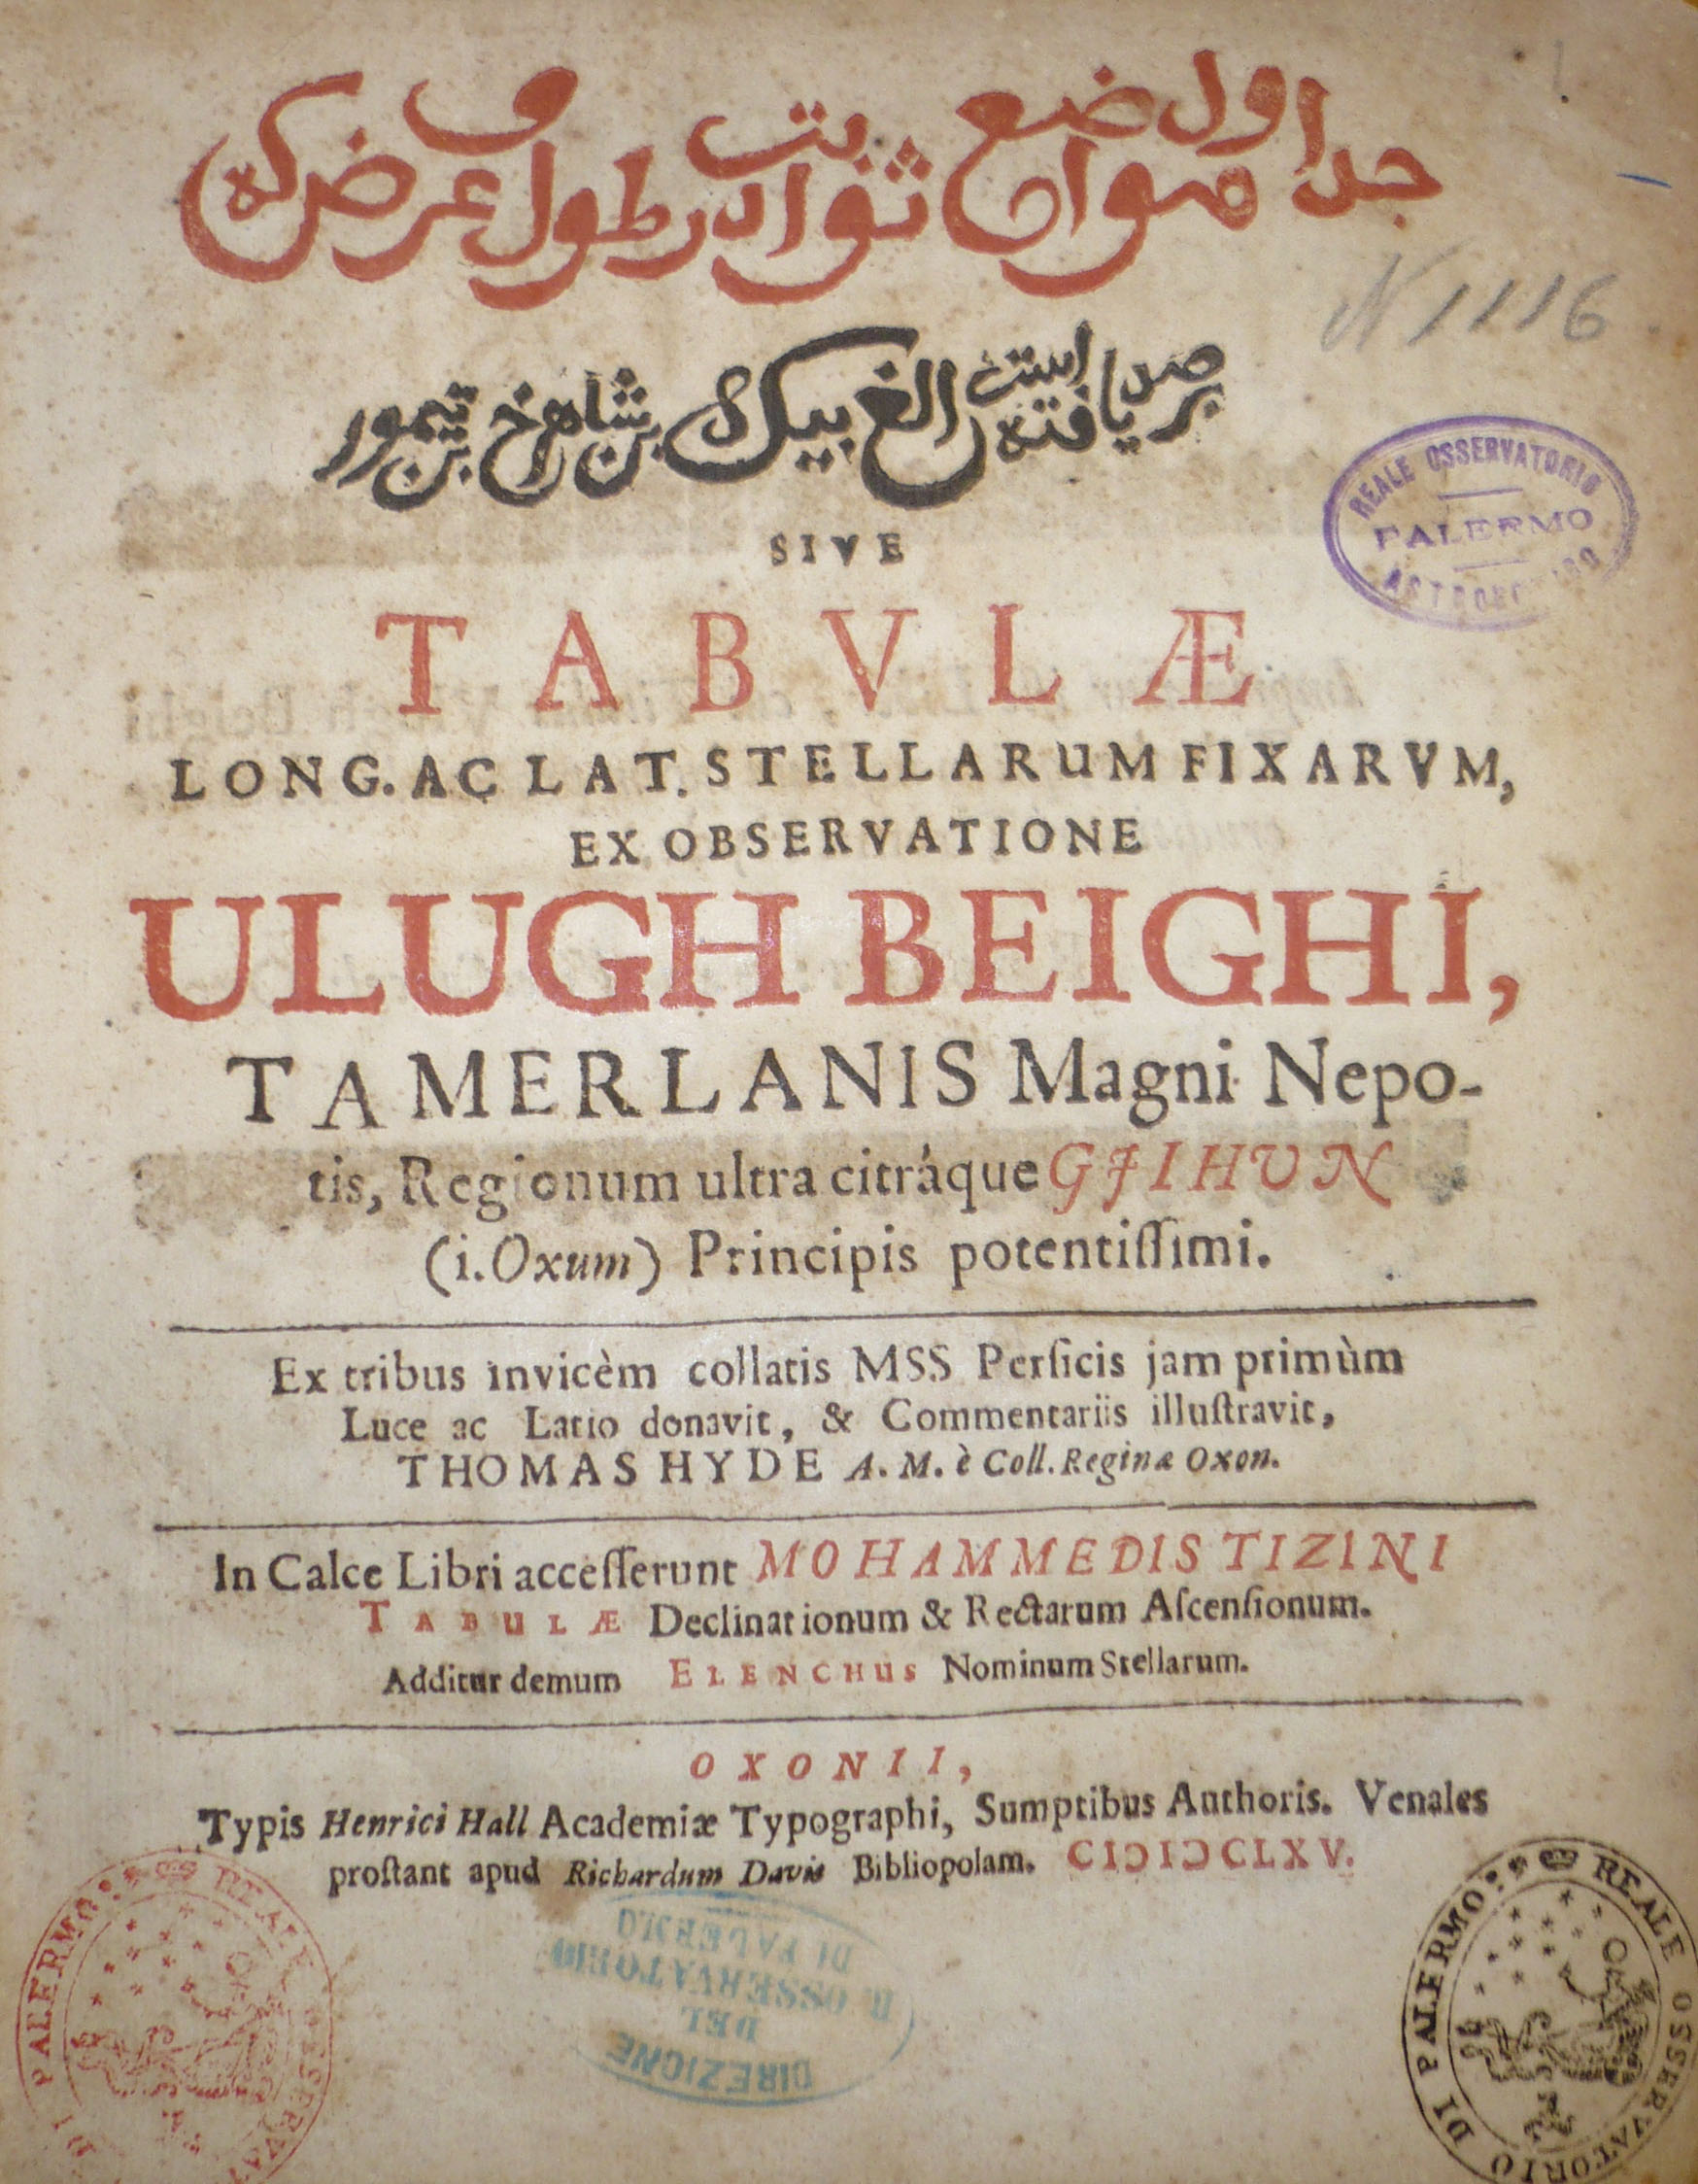 جداول مواضع ثوابت در طول و عرض که
برصد یافته است الغ بیک بن شاهرخ بن تیمور
N 1116
REALE OSSERVATORIO
PALERMO
SIVE
TABVLÆ
LONG. AC LAT. STELLARUM FIXARVM,
EX OBSERVATIONE
ULUGH BEIGHI,
TAMERLANIS Magni Nepo-
tis, Regionum ultra citráque GJIHUN
(i. Oxum) Principis potentiſſimi.
Ex tribus invicèm collatis MSS Perſicis jam primùm
Luce ac Latio donavit, & Commentariis illuſtravit,
THOMAS HYDE A. M. è Coll. Reginæ Oxon.
In Calce Libri acceſſerunt MOHAMMEDIS TIZINI
TABULÆ Declinationum & Rectarum Aſcenſionum.
Additur demum ELENCHUS Nominum Stellarum.
OXONII,
Typis Henrici Hall Academiæ Typographi, Sumptibus Authoris. Venales
proſtant apud Richardum Davis Bibliopolam. CIƆIƆCLXV.
REALE OSSERVATORIO DI PALERMO
DIREZIONE
DEL
R. OSSERVATORIO
DI PALERMO
REALE OSSERVATORIO DI PALERMO